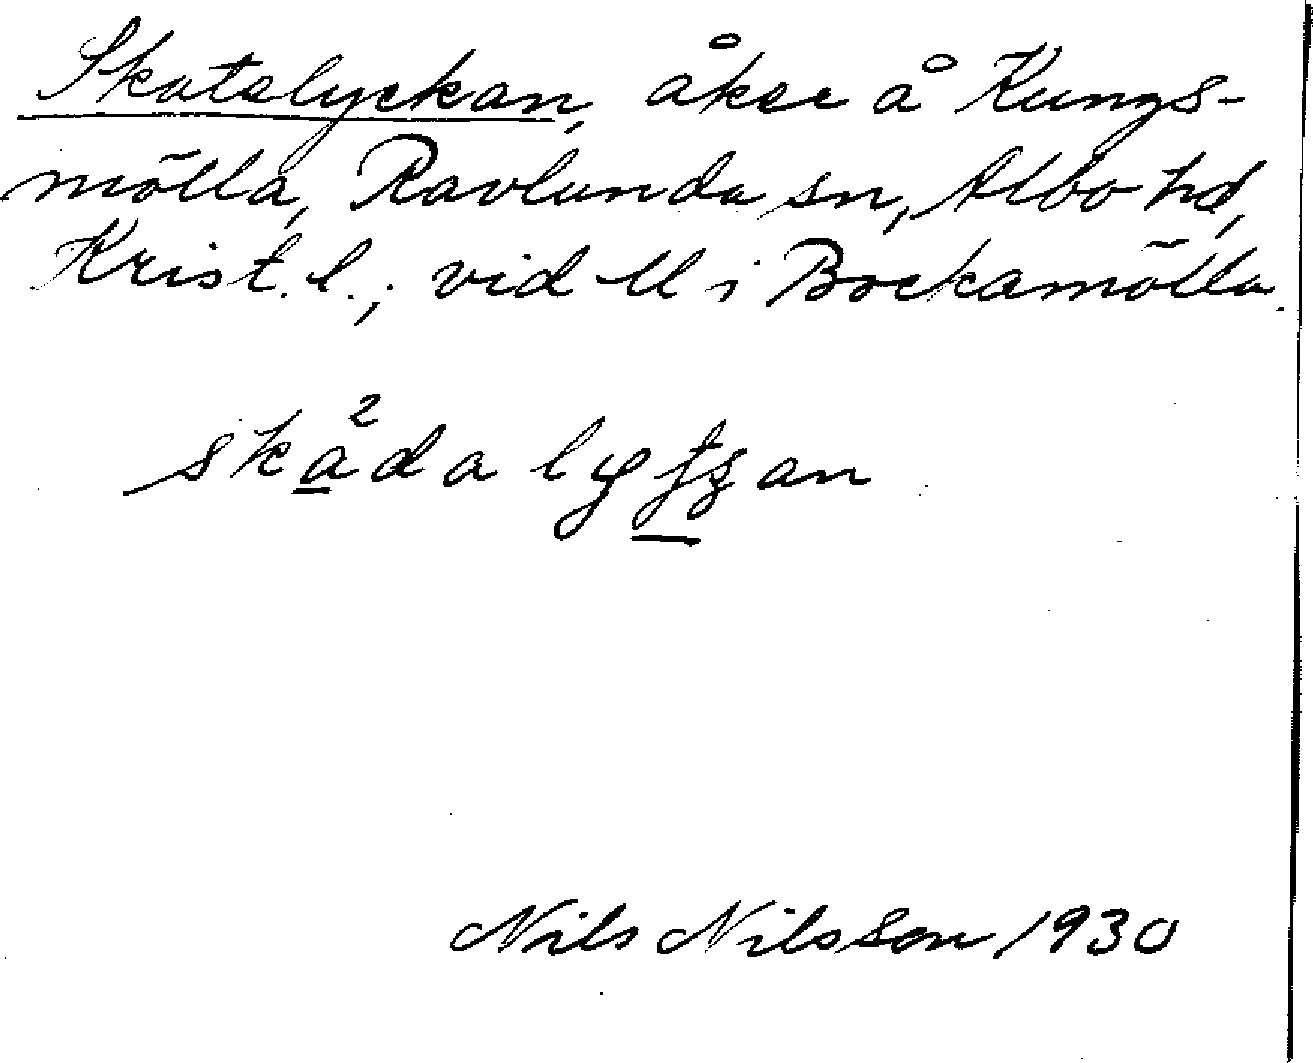 Skatelyckan, åker å Kungs-
mölla, Ravlunda sn, Albo hd,
Krist. l.; vid U i Bockamölla.
skà²da lyfzan
Nils Nilsson 1930